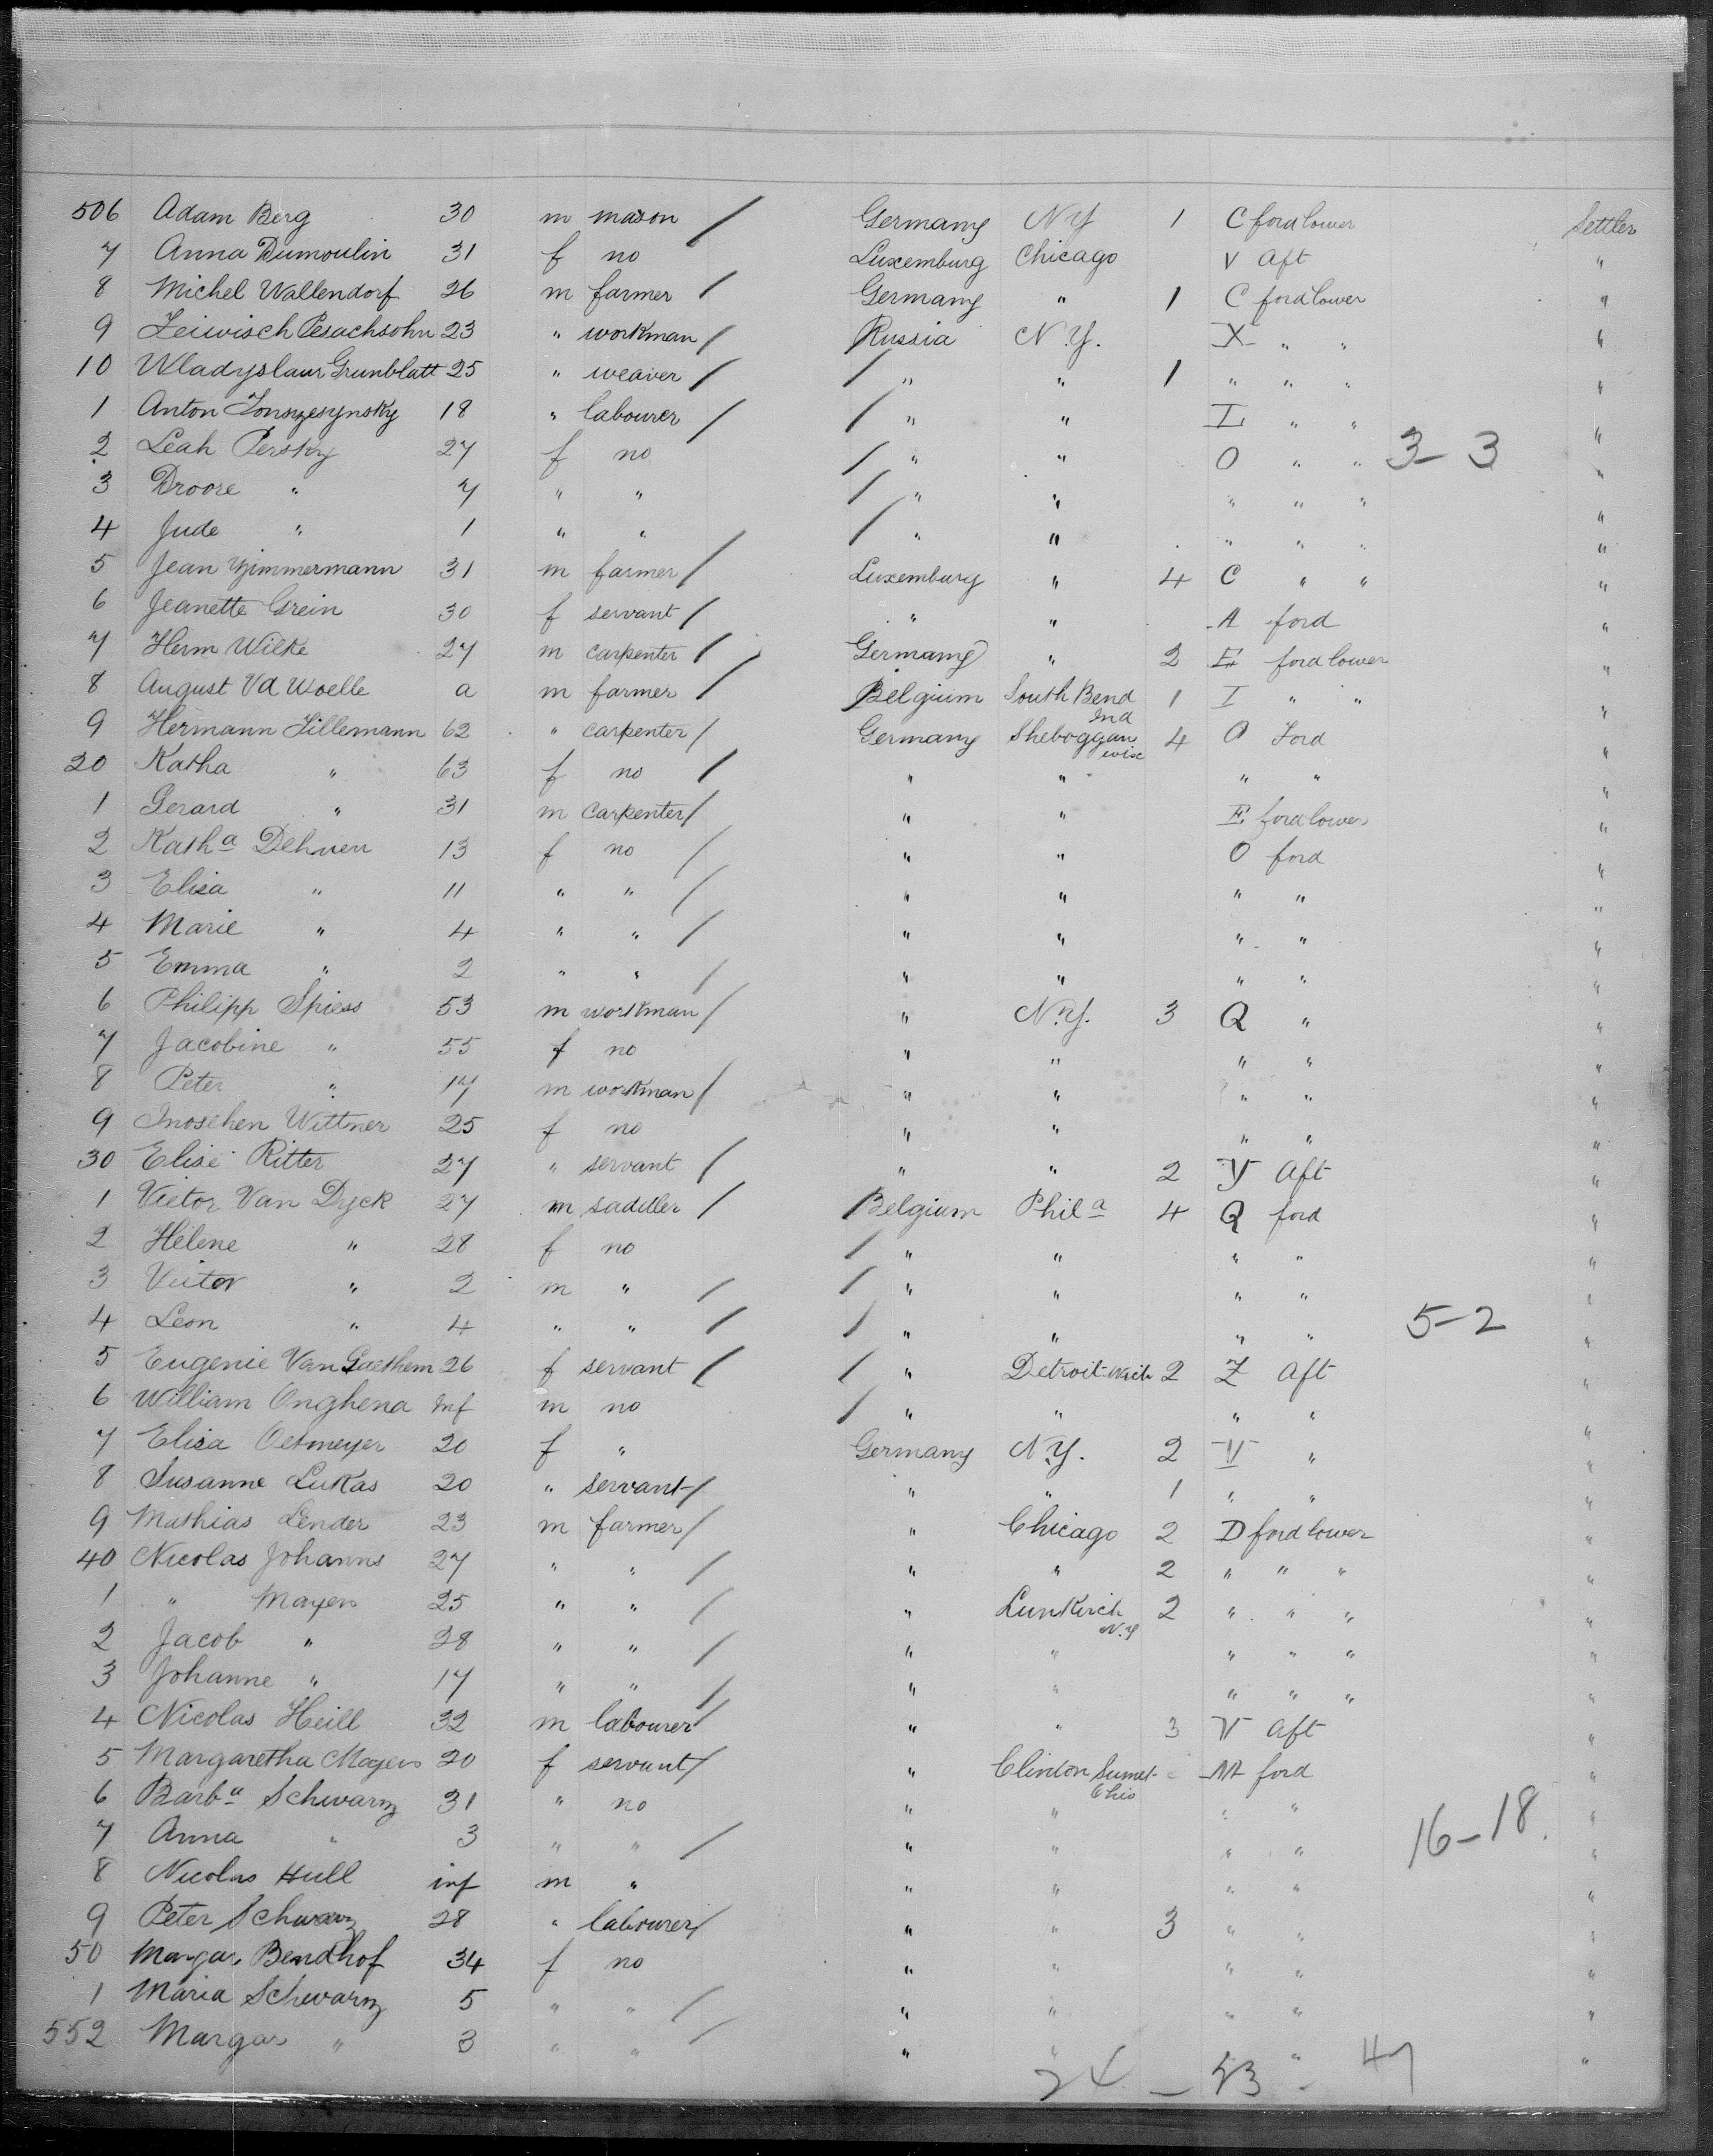 506 Adam Berg 30 m mason / Germany N.Y 1 C ford lower Settler
7 Anna Dumoulin 31 f no Luxemburg Chicago V Aft "
8 Michel Wallendorf 26 m farmer / Germany " 1 C ford lower "
9 Leiwisch Pesachsohn 23 " workman / Russia N.Y. X " " "
10 Wladyslaur Grunblatt 25 " weaver / / " " 1 " " " "
1 Anton 18 " labourer / / " " I " " "
2 Leah Persky 27 f no / " " O " " 3-3 "
3 Droore " 7 " " / " " " " " "
4 Jude " 1 " " / " " " " " "
5 Jean Zimmermann 31 m farmer / Luxemburg " 4 C " " "
6 Jeanette Grein 30 f servant / " " A ford "
7 Herm Wilke 27 m carpenter / Germany " 2 E ford lower "
8 August Vd Woelle a m farmer / Belgium South Bend Ind 1 I " " "
9 Hermann Hillemann 62 " carpenter / Germany Sheboggan wisc 4 O Ford "
20 Katha " 63 f no / " " " " "
1 Gerard " 31 m carpenter / " " E ford lower "
2 Katha Dehnen 13 f no / " " O ford "
3 Elisa " 11 " " / " " " " "
4 Marie " 4 " " / " " " " "
5 Emma " 2 " " / " " " " "
6 Philipp Spiess 53 m workman / " N.Y. 3 Q " "
7 Jacobine " 55 f no " " " " "
8 Peter " 17 m workman / " " " " "
9 Wittner 25 f no " " " " "
30 Elise Ritter 27 " servant / " " 2 Y Aft "
1 Victor Van Dyck 27 m saddler / Belgium Phila 4 Q ford "
2 Helene " 28 f no / " " " " "
3 Victor " 2 m " / / " " " " "
4 Leon " 4 " " / / " " " " 5-2 "
5 Eugenie Van Gaethem 26 f servant / / " Detroit Mich 2 Z Aft "
6 William Onghena inf m no / " " " " "
7 Elisa Oetmeyer 20 f " Germany N.Y. 2 V " "
8 Susanne Lukas 20 " servant / " " 1 " " "
9 Mathias Lender 23 m farmer / " Chicago 2 D ford lower "
40 Nicolas Johanns 27 " " / " " 2 " " " "
1 " Mayers 25 " " / " Lunkirch N.Y 2 " " " "
2 Jacob " 28 " " / " " " " " "
3 Johanne " 17 " " / " " " " " "
4 Nicolas Heill 32 m labourer / " " 3 V aft "
5 Margaretha Mayers 20 f servant / " Clinton Sumet Ohio M ford "
6 Barba Schwarz 31 " no " " " " "
7 Anna " 3 " " / " " " " 16-18. "
8 Nicolas Hull inf m " " " " " "
9 Peter Schwarz 28 " labourer / " " 3 " " "
50 Margar. Bendhof 34 f no " " " " "
1 Maria Schwarz 5 " " / " " " " "
552 Margar " 3 " " / " " " " "
24 - 23 - 47